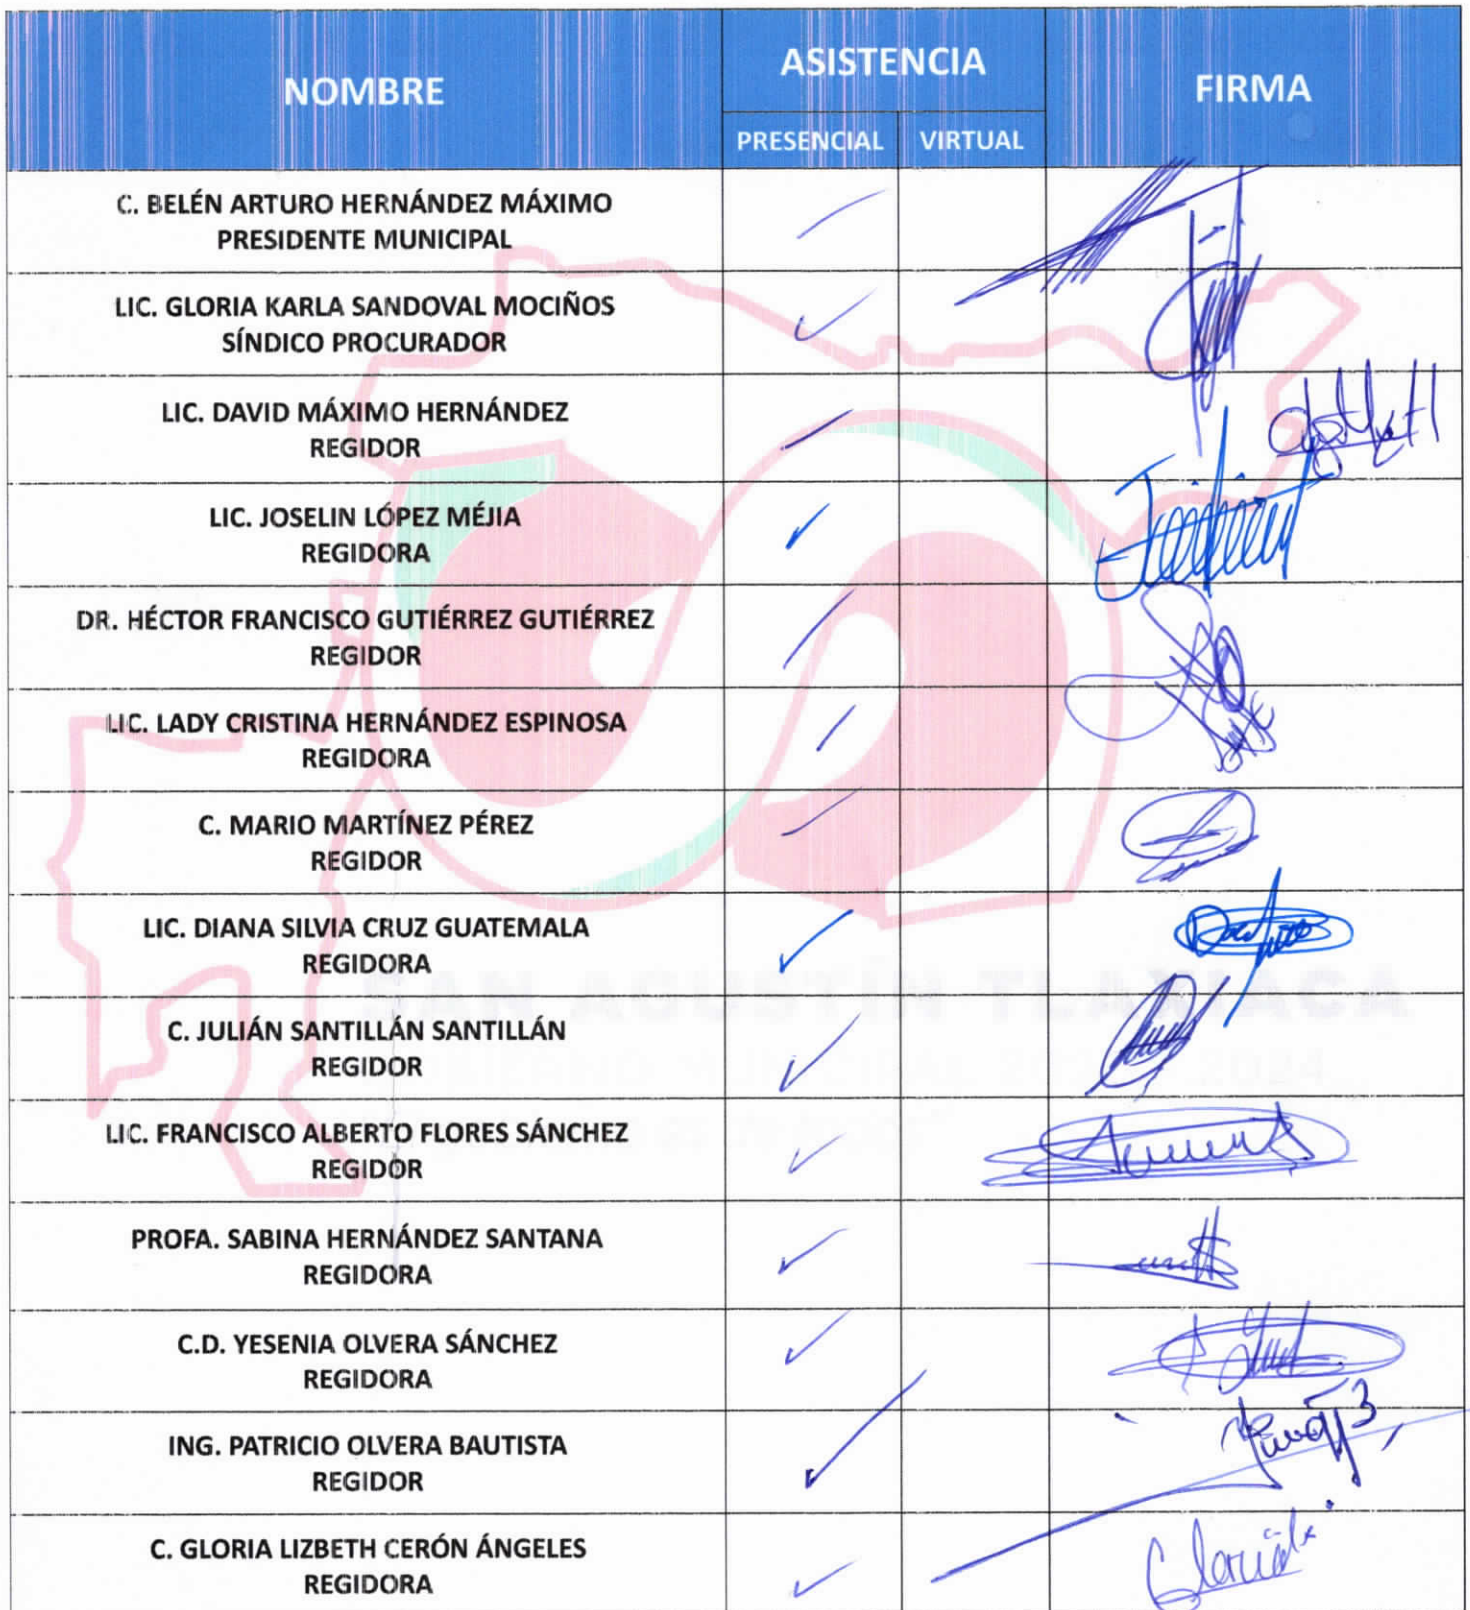 NOMBRE
ASISTENCIA
FIRMA
PRESENCIAL
VIRTUAL
C. BELÉN ARTURO HERNÁNDEZ MÁXIMO
PRESIDENTE MUNICIPAL
LIC. GLORIA KARLA SANDOVAL MOCIÑOS
SÍNDICO PROCURADOR
LIC. DAVID MÁXIMO HERNÁNDEZ
REGIDOR
LIC. JOSELIN LÓPEZ MÉJIA
REGIDORA
DR. HÉCTOR FRANCISCO GUTIÉRREZ GUTIÉRREZ
REGIDOR
LIC. LADY CRISTINA HERNÁNDEZ ESPINOSA
REGIDORA
C. MARIO MARTÍNEZ PÉREZ
REGIDOR
LIC. DIANA SILVIA CRUZ GUATEMALA
REGIDORA
SAN AGUSTÍN TLAXIACA
C. JULIÁN SANTILLÁN SANTILLÁN
REGIDOR
2024
LIC. FRANCISCO ALBERTO FLORES SÁNCHEZ
REGIDOR
PROFA. SABINA HERNÁNDEZ SANTANA
REGIDORA
C.D. YESENIA OLVERA SÁNCHEZ
REGIDORA
ING. PATRICIO OLVERA BAUTISTA
REGIDOR
C. GLORIA LIZBETH CERÓN ÁNGELES
REGIDORA
Gloria